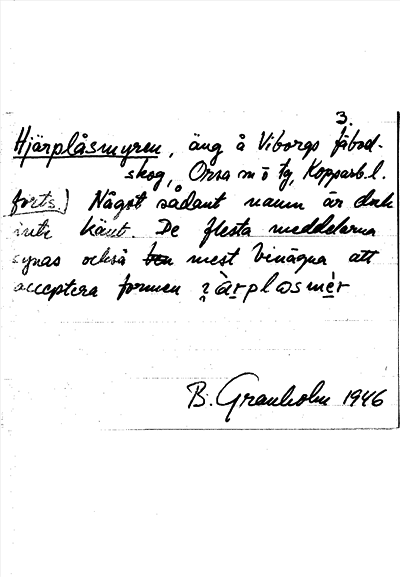 3.
Hjärplåsmyren, äng å Viborgs fäbod-
skog, Orsa sn o tg, Kopparb.l.
forts.) Något sådant namn är dock
inte känt. De flesta meddelarna
synas också mest benägna att
acceptera formen
B. Granholm 1946